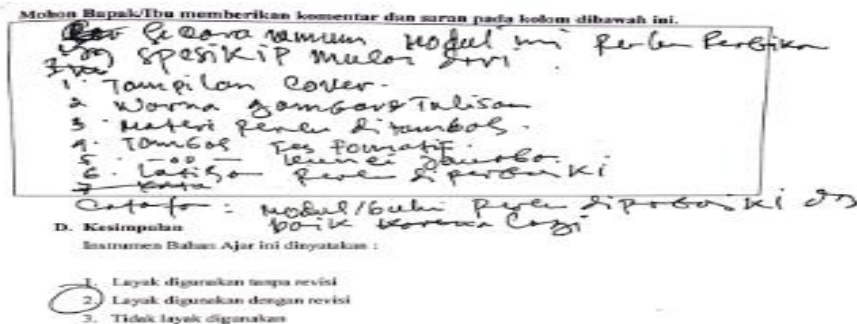 Mohon Bapak/Ibu memberikan komentar dan saran pada kolom dibawah ini.
Secara umum modul ini perlu Perbaikan
yang spesikip mulai dari
1. Tampilan Cover.
2 Warna gambar & Tulisan
3. Materi perlu ditambah.
4. Tambah Tes Formatif.
5. kunci Jawaban.
6. Latihan perlu diperbaiki
Catatan : modul/buku perlu diperbaiki dg
baik lagi
D. Kesimpulan
Instrumen Bahan Ajar ini dinyatakan :
1. Layak digunakan tanpa revisi
2. Layak digunakan dengan revisi
3. Tidak layak digunakan